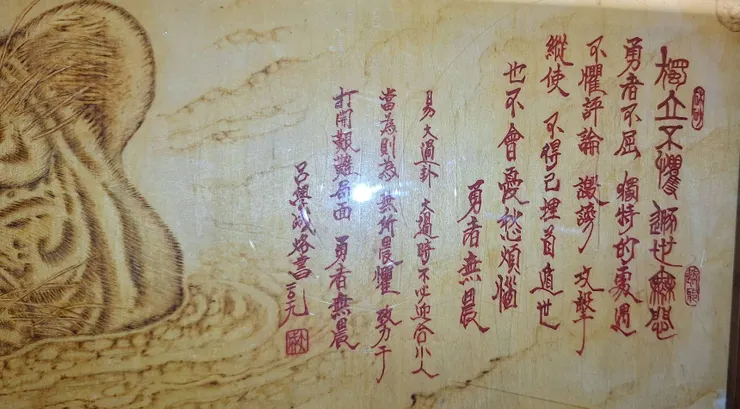 獨立不懼 遯世無悶
勇者不屈 獨特的處遇
不懼評論 譏謗 攻擊
縱使 不得已埋首遁世
也不會憂愁煩惱
勇者無畏
易 大過卦 大過時不必迎合小人
當為則為 無所畏懼 致力于
打開艱難局面 勇者無畏
呂興 烙書